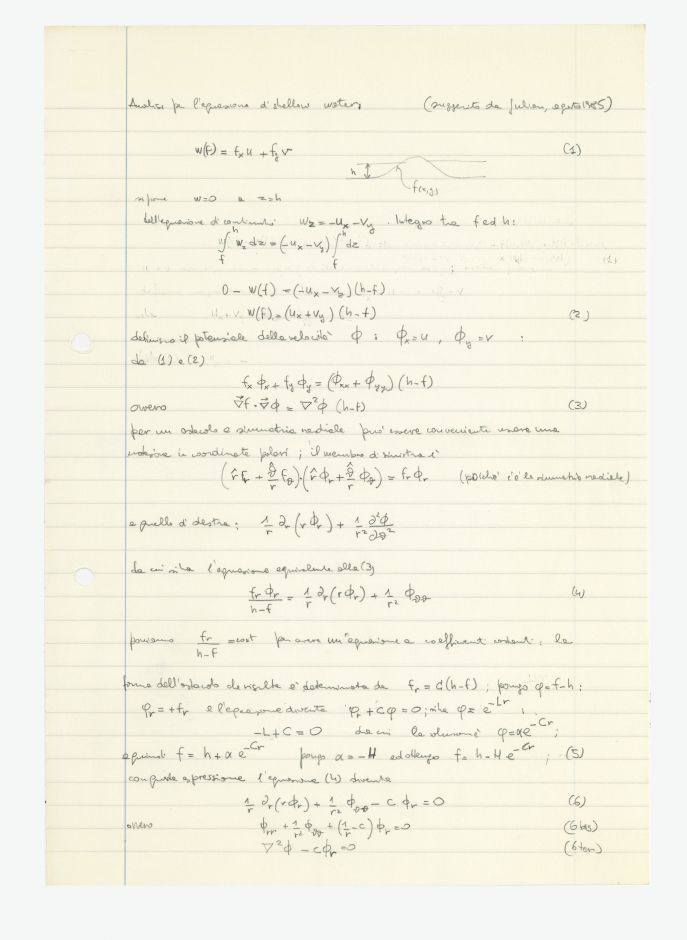 Analisi per l'equazione d'shallow water, (suggerita da Julian, agosto 1985)
w(f) = fₓu + f_y v (1)
h
f(x,y)
si pone w=0 a z=h
dall'equazione di continuità w_z = -uₓ - v_y. Integro tra f ed h:
∫_f^h w_z dz = (-uₓ - v_y) ∫_f^h dz
0 - w(f) = (-uₓ - v_y)(h-f)
w(f) = (uₓ + v_y)(h-f) (2)
definisco il potenziale della velocità ϕ : ϕₓ = u, ϕ_y = v :
da (1) e (2)
fₓ ϕₓ + f_y ϕ_y = (ϕₓₓ + ϕ_yy)(h-f)
ovvero ∇f · ∇ϕ = ∇²ϕ (h-f) (3)
per un ostacolo a simmetria radiale può essere conveniente usare una
notazione in coordinate polari; il membro di sinistra è
(r̂ f_r + θ̂/r f_θ)·(r̂ ϕ_r + θ̂/r ϕ_θ) = f_r ϕ_r (poiché c'è la simmetria radiale)
e quello d' destra: 1/r ∂_r (r ϕ_r) + 1/r² ∂²ϕ/∂θ²
da cui si ha l'equazione equivalente alla (3)
f_r ϕ_r/(h-f) = 1/r ∂_r (rϕ_r) + 1/r² ϕ_θθ (4)
poniamo f_r/(h-f) = cost per avere un'equazione a coefficienti costanti; la
forma dell'ostacolo che risulta è determinata da f_r = C(h-f); pongo φ = f-h:
φ_r = +f_r e l'equazione diventa φ_r + Cφ = 0; si ha φ = e^(-Lr) ;
-L + C = 0 da cui la soluzione φ = αe^(-Cr) ;
e quindi f = h + α e^(-Cr) pongo α = -H ed ottengo f = h - H e^(-Cr) ; (5)
con questa espressione l'equazione (4) diventa
1/r ∂_r (rϕ_r) + 1/r² ϕ_θθ - C ϕ_r = 0 (6)
ovvero ϕ_rr + 1/r² ϕ_θθ + (1/r - C) ϕ_r = 0 (6 bis)
∇²ϕ - Cϕ_r = 0 (6 ter)